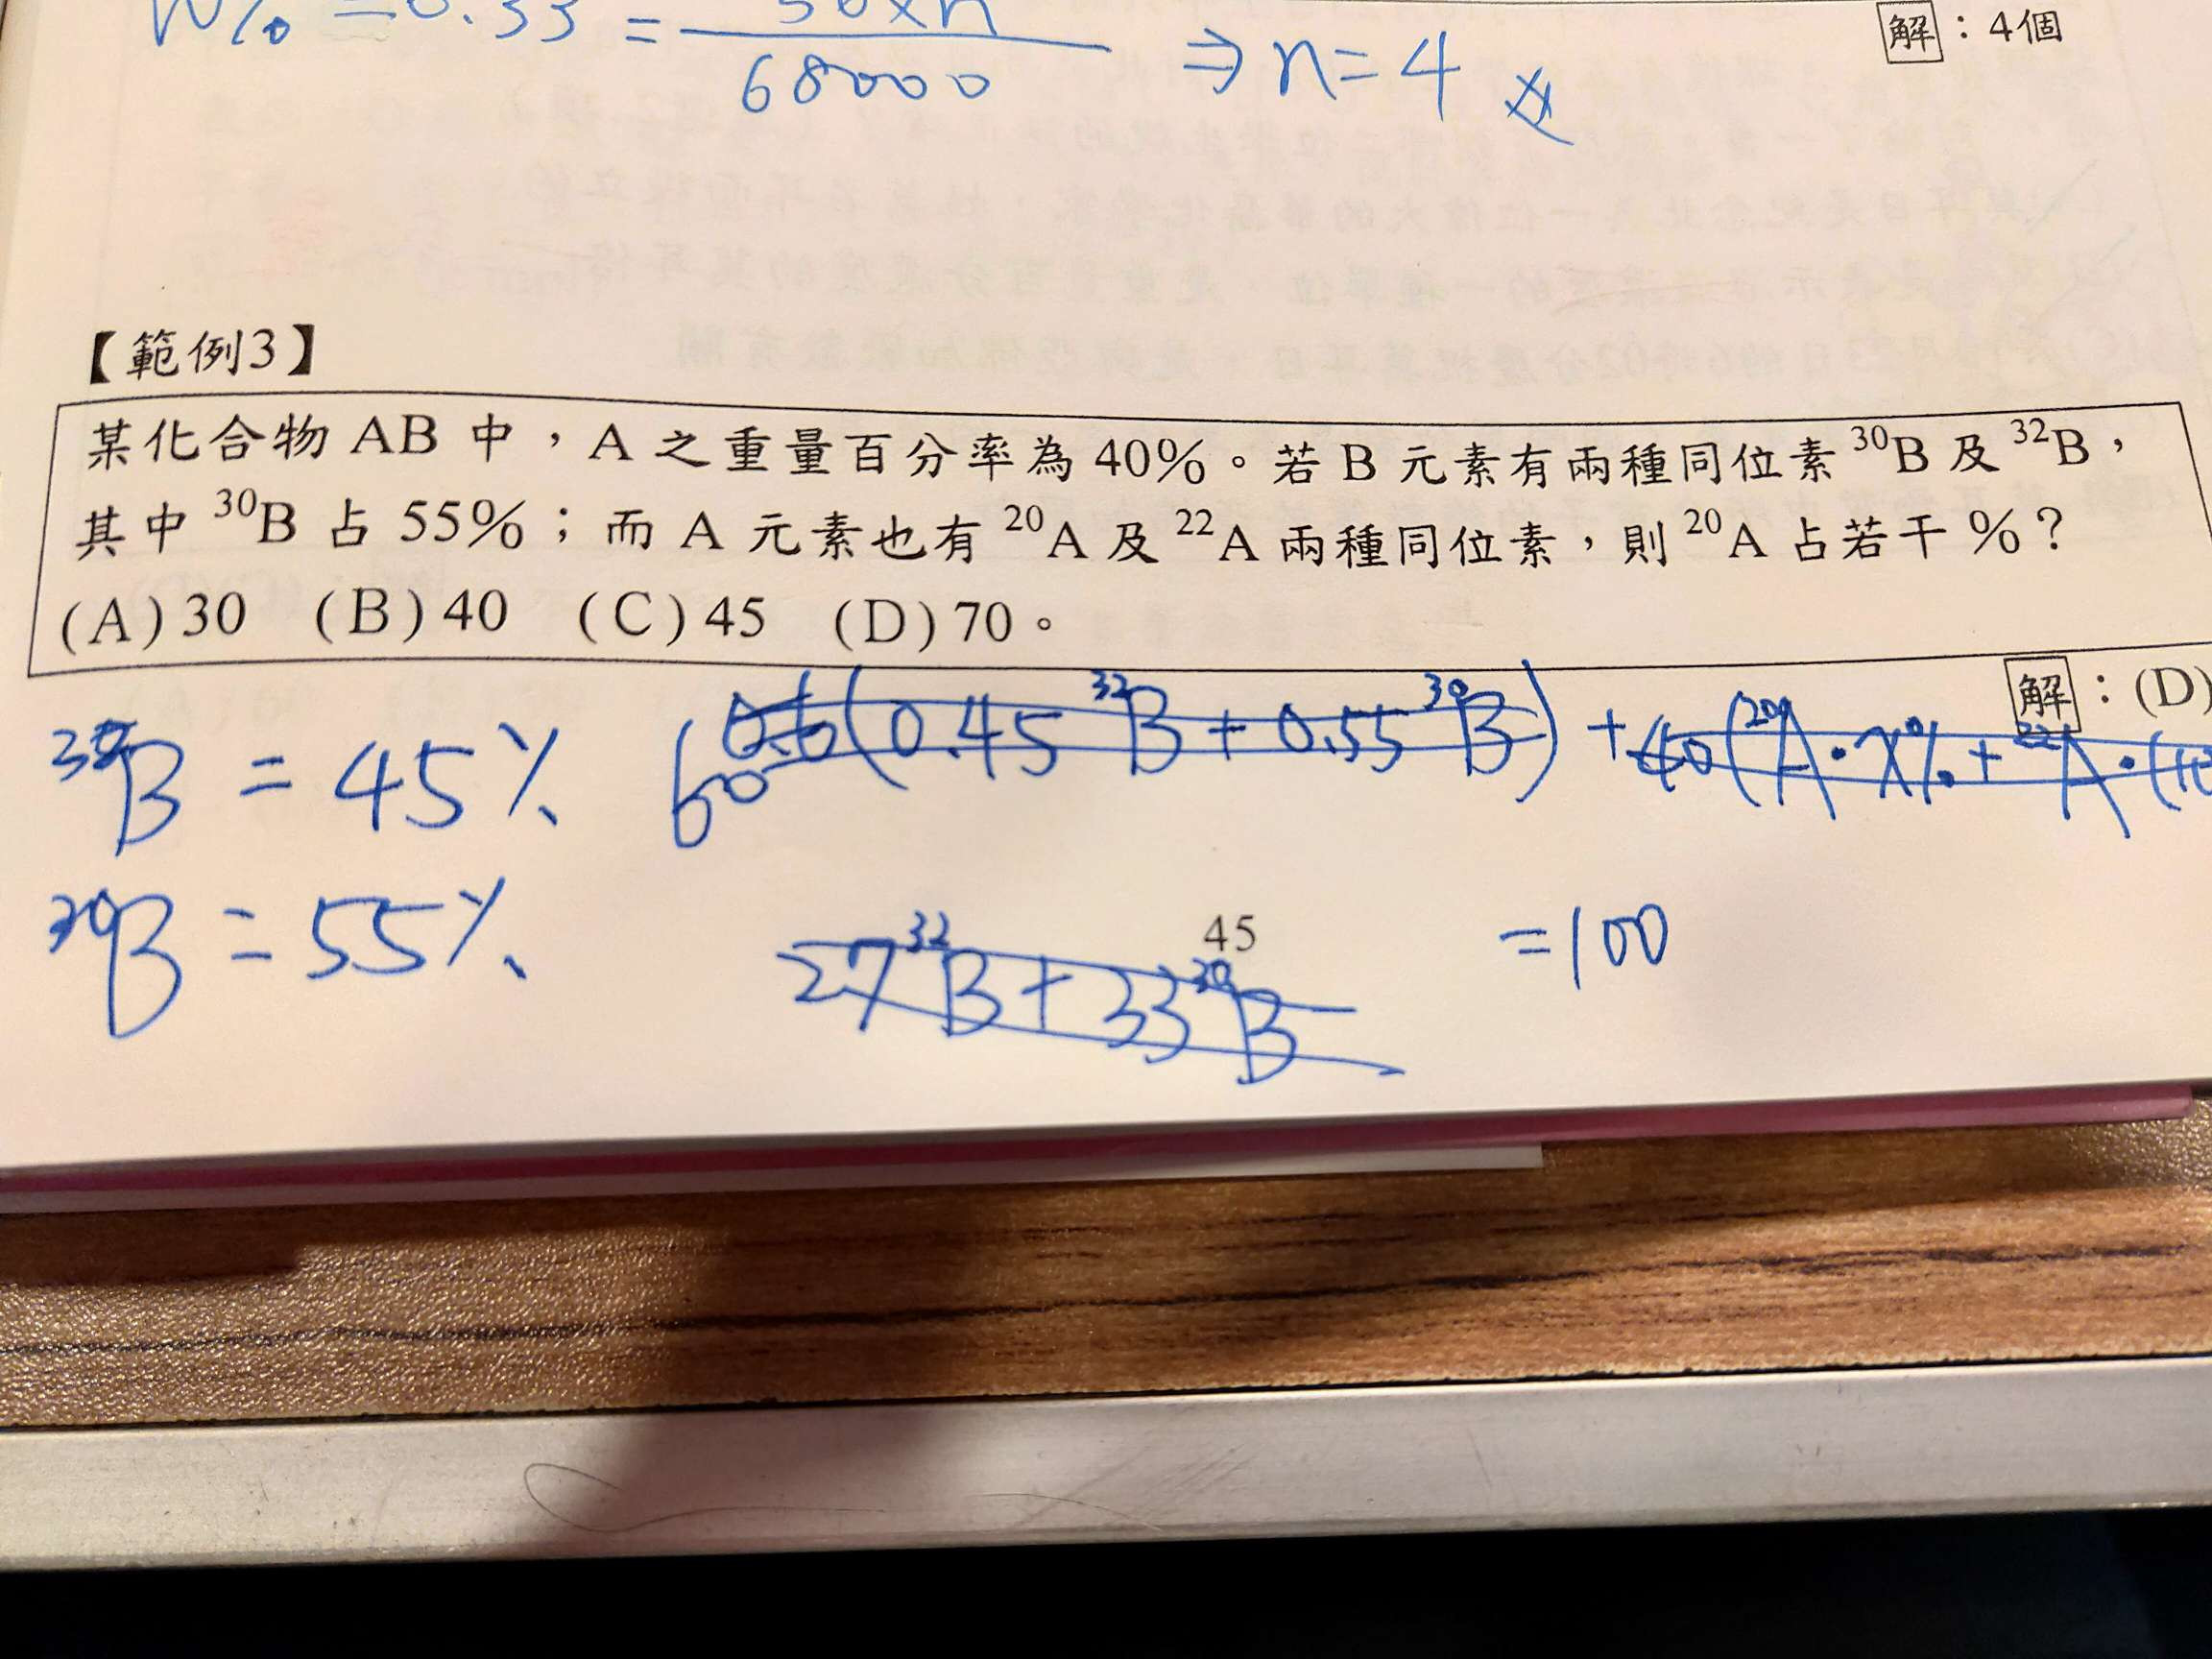 W% = 0.33 = 50×n / 68000 ⇒ n=4
解：4個
【範例3】
某化合物 AB 中，A 之重量百分率為 40%。若 B 元素有兩種同位素 ³⁰B 及 ³²B，
其中 ³⁰B 占 55%；而 A 元素也有 ²⁰A 及 ²²A 兩種同位素，則 ²⁰A 占若干 %？
(A)30 (B)40 (C)45 (D)70。
解：(D)
B = 45%
60 0.6(0.45 ³²B + 0.55 ³⁰B) + 40(²⁰A·x% + ²²A·(10
³⁰B = 55%
27 ³²B + 33 ³⁰B
=100
45